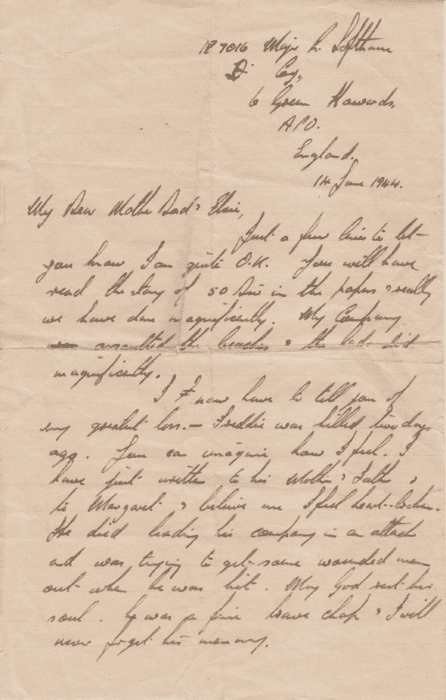 187016 Major R. Lofthouse
D Coy,
6 Green Howards,
A.P.O.
England.
14 June 1944.
My Dear Mother Dad & Elsie,
Just a few lines to let
you know I am quite O.K. You will have
read the story of 50 Div in the papers & really
we have done magnificently. My Company
assaulted the beaches & the lads did
magnificently.
I now have to tell you of
my greatest loss. — Freddie was killed two days
ago. You can imagine how I feel. I
have just written to his Mother & Father &
to Margaret & believe me I feel heart-broken.
He died leading his company in an attack
and was trying to get some wounded men
out when he was hit. May God rest his
soul. He was a fine brave chap & I will
never forget his memory.